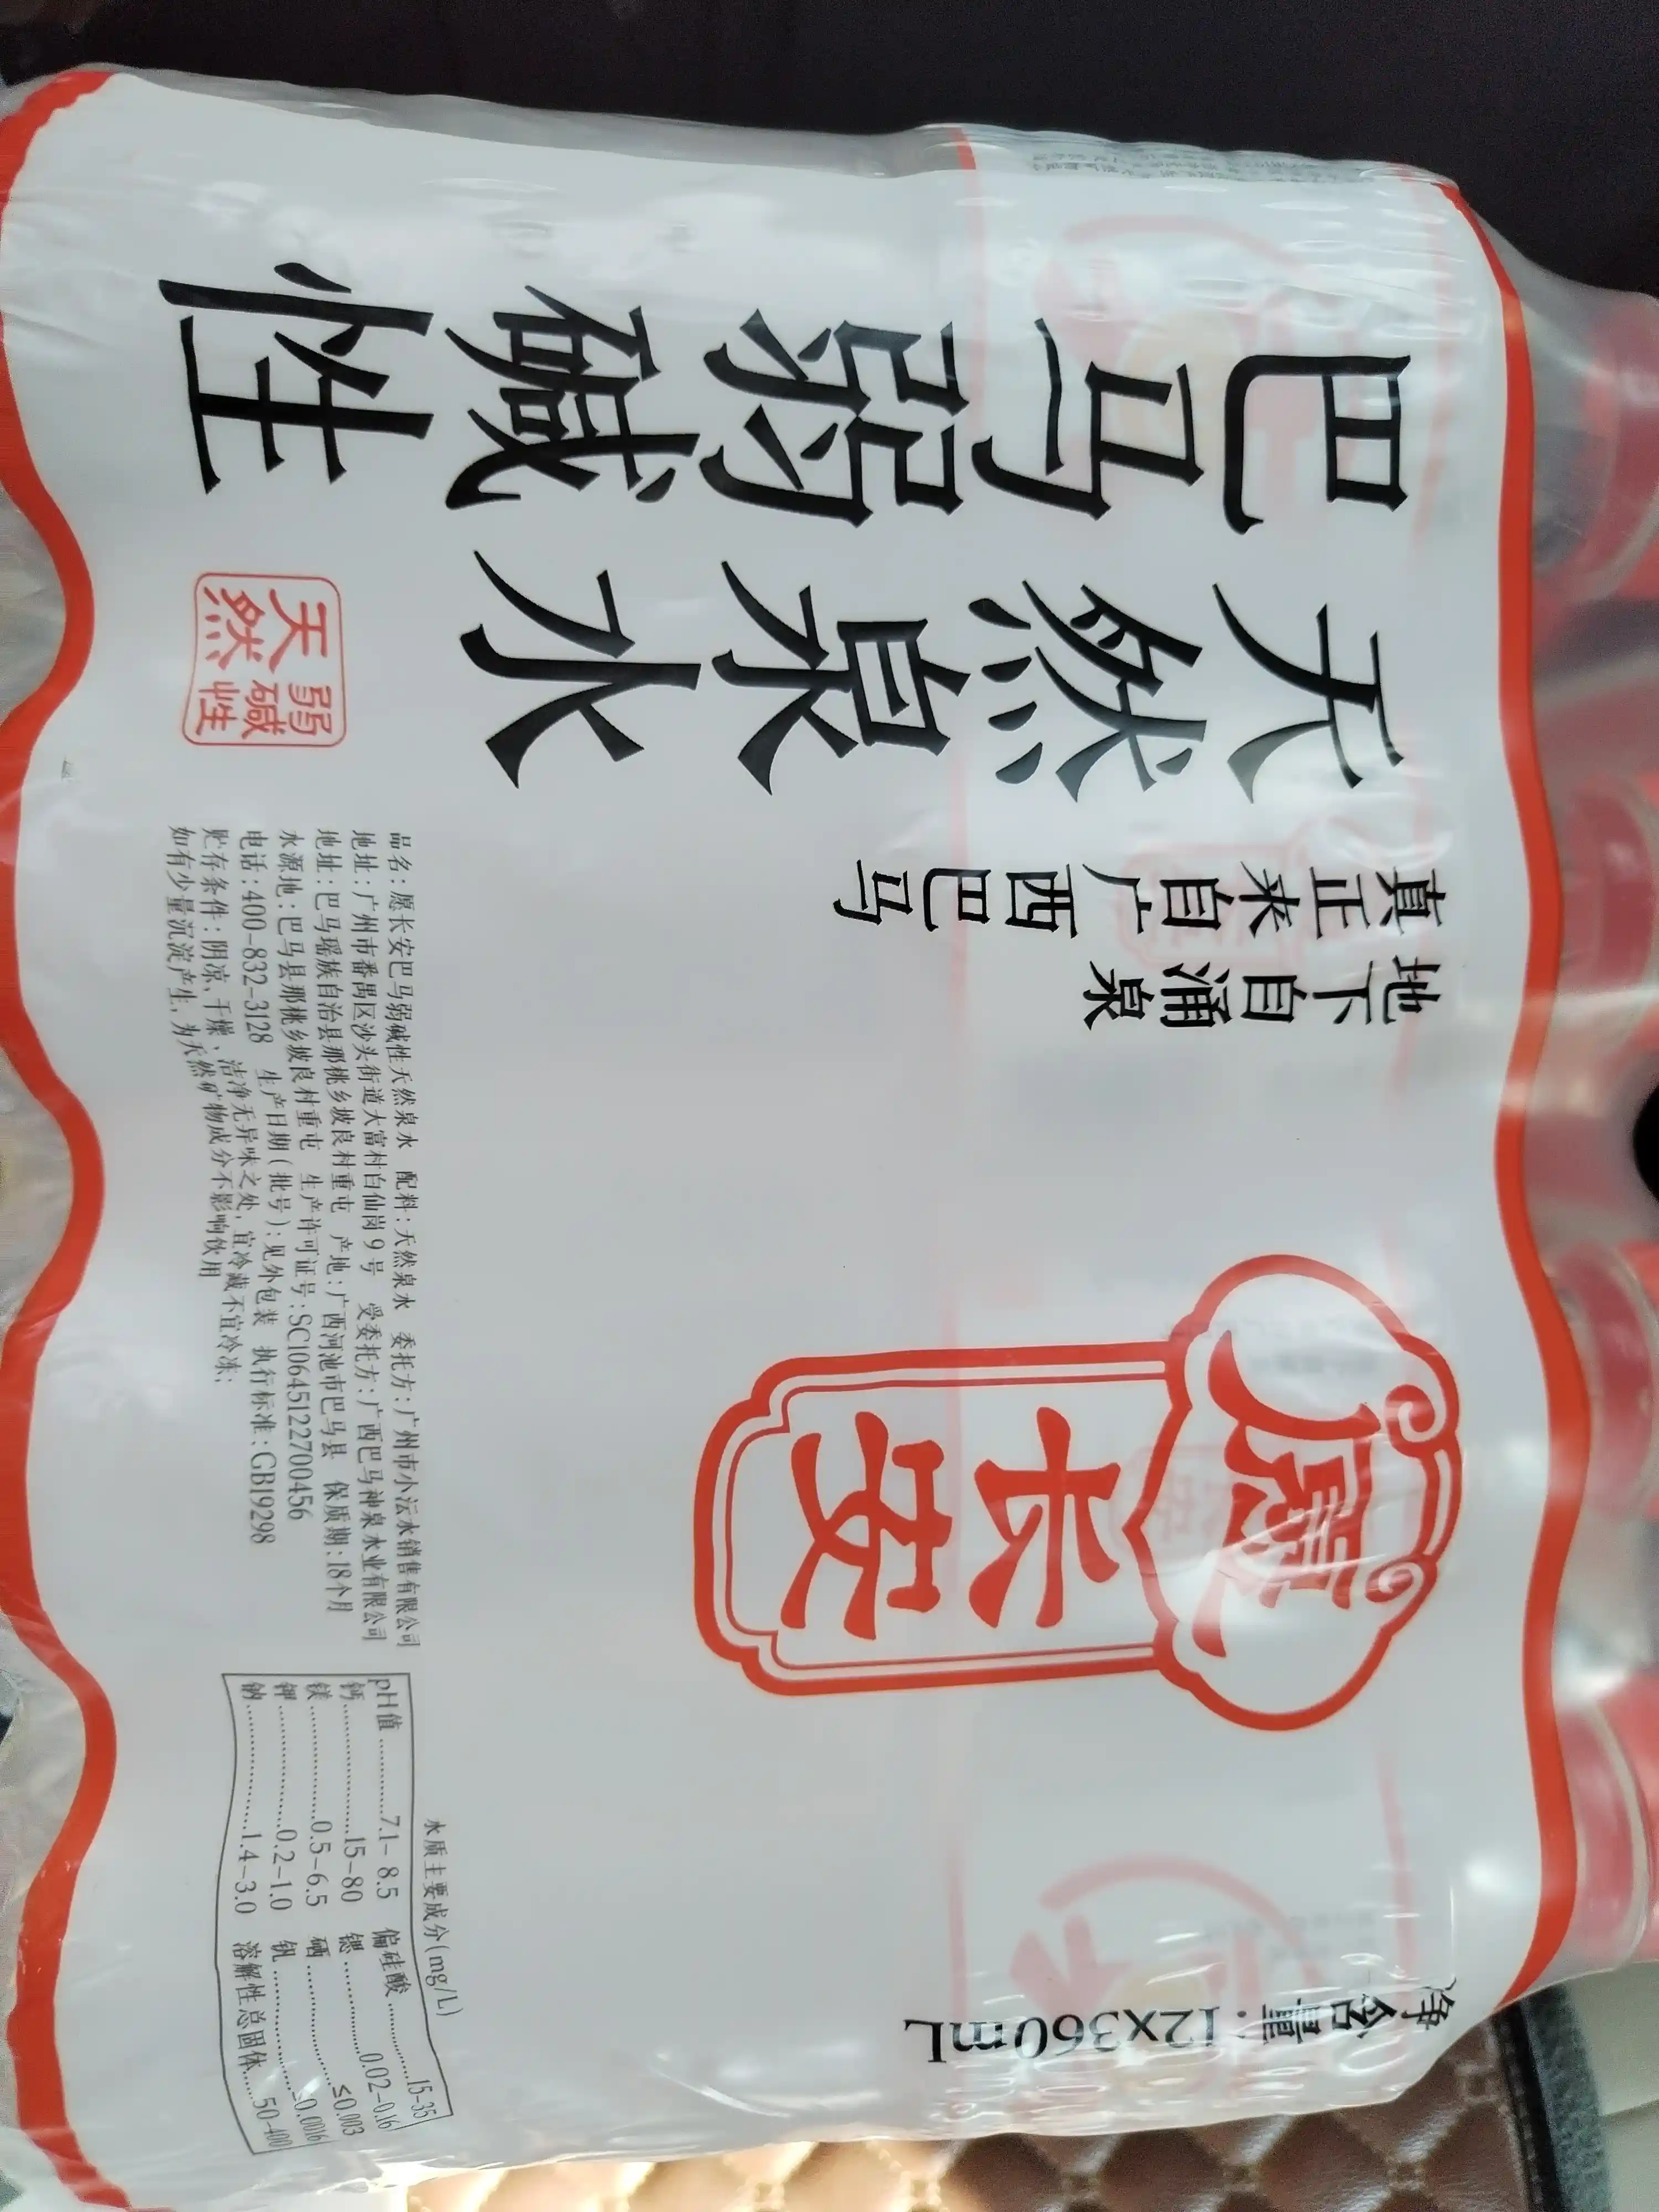 巴马弱碱性
天然泉水
天然
弱碱性
真正来自广西巴马
地下自涌泉
愿
长安
净含量:12x360mL
品名:愿长安巴马弱碱性天然泉水 配料:天然泉水 委托方:广州市小沄水销售有限公司
地址:广州市番禺区沙头街道大富村白仙岗9号 受委托方:广西巴马神泉水业有限公司
地址:巴马瑶族自治县那桃乡坡良村重屯 产地:广西河池市巴马县 保质期:18个月
水源地:巴马县那桃乡坡良村重屯 生产许可证号:SC10645122700456
电话:400-832-3128 生产日期(批号):见外包装 执行标准:GB19298
贮存条件:阴凉、干燥、洁净无异味之处,宜冷藏不宜冷冻;
如有少量沉淀产生,为天然矿物成分不影响饮用
水质主要成分(mg/L)
pH值............7.1-8.5 偏硅酸............15-35
钙............15-80 锶............0.02-0.16
镁............0.5-6.5 硒............≤0.003
钾............0.2-1.0 钒............≤0.0016
钠............1.4-3.0 溶解性总固体......50-400